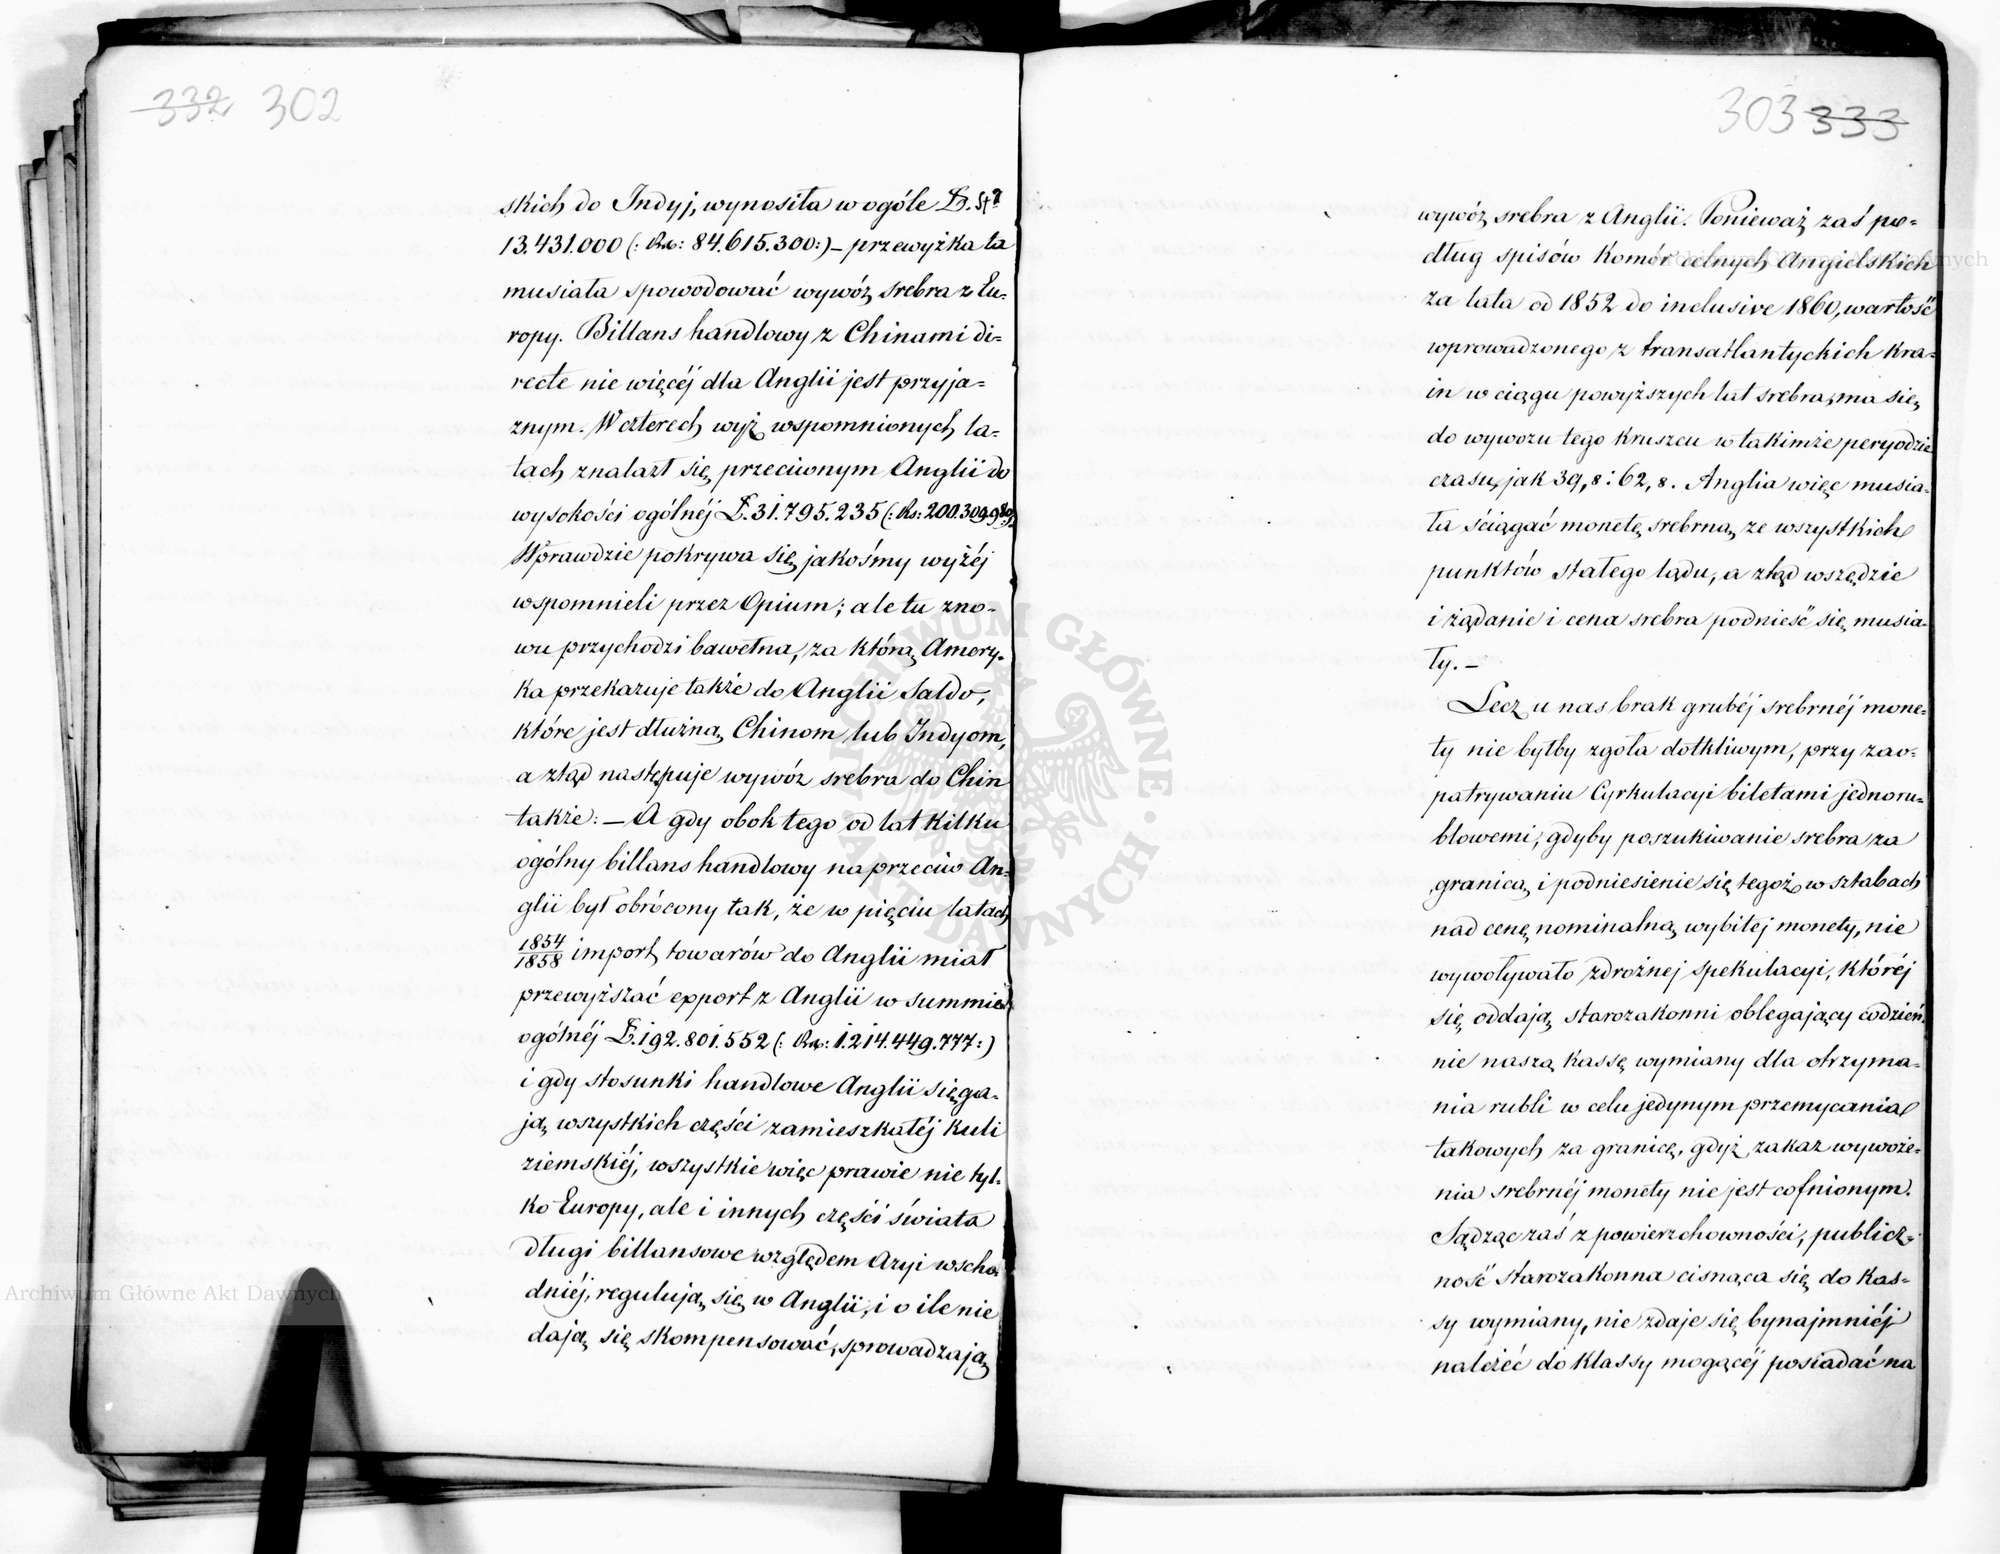 332 302
skich do Indyj, wynosiła w ogóle L. Stg
13.431.000 (: Rs: 84.615.300:) – przewyżka ta
musiała spowodować wywóz srebra z Eu-
ropy. Billans handlowy z Chinami di-
recte nie więcéj dla Anglii jest przyja-
znym. W czterech wyż wspomnionych la-
tach znalazł się przeciwnym Anglii do
wysokości ogólnéj L. 31.795.235 (: Rs: 200.309.980:)
Wprawdzie pokrywa się jakośmy wyżéj
wspomnieli przez Opium; ale tu zno-
wu przychodzi bawełna, za którą Amery-
ka przekazuje także do Anglii Saldo,
które jest dłużną Chinom lub Indyom,
a ztąd następuje wywóz srebra do Chin
także: – A gdy obok tego od lat kilku
ogólny billans handlowy naprzeciw An-
glii był obrócony tak, że w pięciu latach
1854/1858 import towarów do Anglii miał
przewyższać export z Anglii w summie
ogólnéj L. 192.801.552 (: Rs: 1.214.449.777:)
i gdy stosunki handlowe Anglii sięga-
ją wszystkich części zamieszkałéj kuli
ziemskiéj, wszystkie więc prawie nie tyl-
ko Europy, ale i innych części świata
długi billansowe względem Azyi wscho-
dniéj, regulują się w Anglii, i o ile nie
dają się skompensować, sprowadzają
303 333
wywóz srebra z Anglii. Ponieważ zaś po-
dług spisów Komór celnych Angielskich
za lata od 1852 do inclusive 1860, wartość
wprowadzonego z transatlantyckich kra-
in w ciągu powyższych lat srebra, ma się
do wywozu tego kruszcu w takimże peryodzie
czasu, jak 39,8 : 62,8. Anglia więc musia-
ła ściągać monetę srebrną ze wszystkich
punktów stałego lądu, a ztąd wszędzie
i żądanie i cena srebra podnieść się musia-
ły. –
Lecz u nas brak grubéj srebrnéj mone-
ty nie byłby zgoła dotkliwym, przy zao-
patrywaniu Cyrkulacyi biletami jednoru-
blowemi, gdyby poszukiwanie srebra za
granicą i podniesienie się tegoż w sztabach
nad cenę nominalną wybitej monety, nie
wywoływało zdrożnej spekulacyi, któréj
się oddają starozakonni oblegający codzień-
nie naszą kassę wymiany dla otrzyma-
nia rubli w celu jedynym przemycania
takowych za granicę, gdyż zakaz wywoże-
nia srebrnéj monety nie jest cofnionym.
Sądząc zaś z powierzchowności, publicz-
ność starozakonna cisnąca się do kas-
sy wymiany, nie zdaje się bynajmniéj
należéć do klassy mogącéj posiadać na
ARCHIWUM GŁÓWNE AKT DAWNYCH
Archiwum Główne Akt Dawnych
Archiwum Główne Akt Dawnych